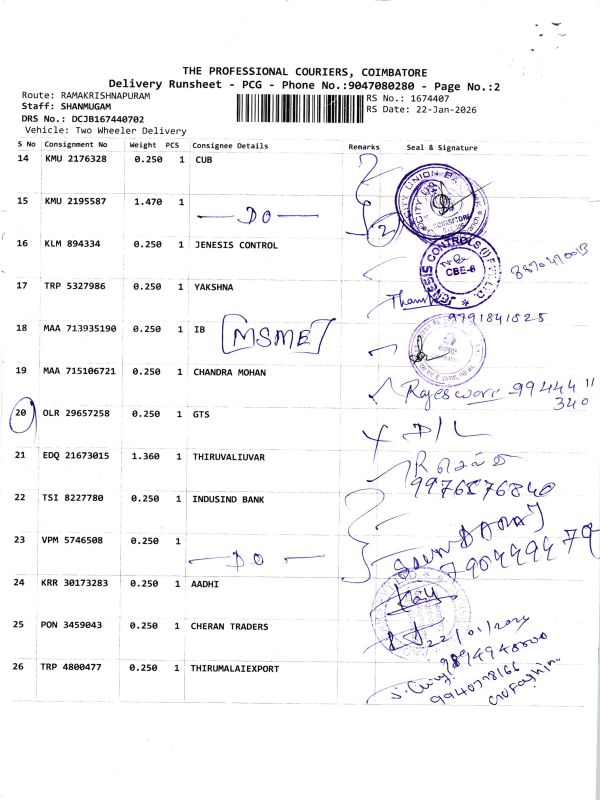 THE PROFESSIONAL COURIERS, COIMBATORE
Delivery Runsheet - PCG - Phone No.:9047080280 - Page No.:2
Route: RAMAKRISHNAPURAM
Staff: SHANMUGAM
RS No.: 1674407
DRS No.: DCJB167440702
RS Date: 22-Jan-2026
Vehicle: Two Wheeler Delivery
S No Consignment No Weight PCS Consignee Details Remarks Seal & Signature
14 KMU 2176328 0.250 1 CUB
CITY UNION
15 KMU 2195587 1.470 1 — DO — 2
16 KLM 894334 0.250 1 JENESIS CONTROL
JENESIS CONTROLS (I) CBE-6
17 TRP 5327986 0.250 1 YAKSHNA
9791841825
18 MAA 713935190 0.250 1 IB [MSME]
19 MAA 715106721 0.250 1 CHANDRA MOHAN
Rajeswari - 99444 11
340
20 OLR 29657258 0.250 1 GTS X D/L
21 EDQ 21673015 1.360 1 THIRUVALIUVAR
9976576840
22 TSI 8227780 0.250 1 INDUSIND BANK
23 VPM 5746508 0.250 1 — DO —
24 KRR 30173283 0.250 1 AADHI
25 PON 3459043 0.250 1 CHERAN TRADERS
22/01/2026
26 TRP 4800477 0.250 1 THIRUMALAIEXPORT